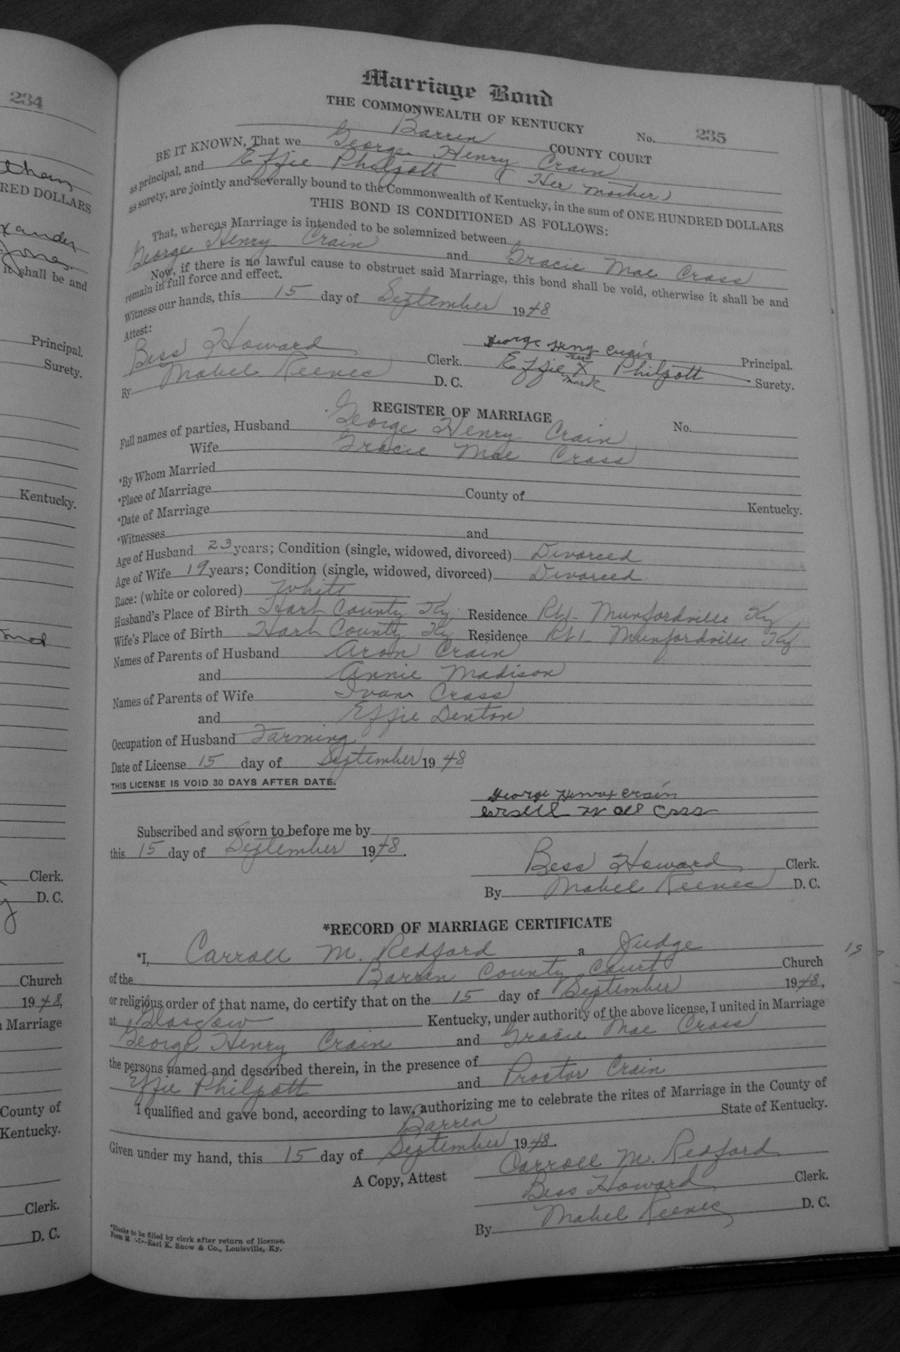 234
RED DOLLARS
it shall be and
Principal.
Surety.
Kentucky.
Clerk.
D. C.
Church
1948,
Marriage
County of
Kentucky.
Clerk.
D. C.
Marriage Bond
THE COMMONWEALTH OF KENTUCKY
No. 235
Barren COUNTY COURT
BE IT KNOWN, That we George Henry Crain
as principal, and Effie Philpott (Her mother)
as surety, are jointly and severally bound to the Commonwealth of Kentucky, in the sum of ONE HUNDRED DOLLARS
THIS BOND IS CONDITIONED AS FOLLOWS:
That, whereas Marriage is intended to be solemnized between
George Henry Crain and Gracie Mae Cross
Now, if there is no lawful cause to obstruct said Marriage, this bond shall be void, otherwise it shall be and
remain in full force and effect.
Witness our hands, this 15 day of September 1948
Attest:
Bess Howard Clerk. George Henry Crain Principal.
By Mabel Reeves D. C. Effie her X mark Philpott Surety.
REGISTER OF MARRIAGE
No.
Full names of parties, Husband George Henry Crain
Wife Gracie Mae Cross
*By Whom Married
*Place of Marriage County of Kentucky.
*Date of Marriage
*Witnesses and
Age of Husband 23 years; Condition (single, widowed, divorced) Divorced
Age of Wife 19 years; Condition (single, widowed, divorced) Divorced
Race: (white or colored) White
Husband's Place of Birth Hart County Ky Residence Rt1- Munfordville Ky
Wife's Place of Birth Hart County Ky Residence Rt1- Munfordville Ky
Names of Parents of Husband Aron Crain
and Annie Madison
Names of Parents of Wife Ivan Cross
and Effie Denton
Occupation of Husband Farming
Date of License 15 day of September 1948
THIS LICENSE IS VOID 30 DAYS AFTER DATE.
George Henry Crain
Subscribed and sworn to before me by
this 15 day of September 1948.
Bess Howard Clerk.
By Mabel Reeves D. C.
*RECORD OF MARRIAGE CERTIFICATE
*I, Carroll M. Redford a Judge
of the Barren County Court Church
or religious order of that name, do certify that on the 15 day of September 1948,
at Glasgow Kentucky, under authority of the above license, I united in Marriage
George Henry Crain and Gracie Mae Cross
the persons named and described therein, in the presence of
Effie Philpott and Proctor Crain
I qualified and gave bond, according to law, authorizing me to celebrate the rites of Marriage in the County of
Barren State of Kentucky.
Given under my hand, this 15 day of September 1948.
Carroll M. Redford
A Copy, Attest Bess Howard Clerk.
By Mabel Reeves D. C.
*Blanks to be filled by clerk after return of license.
Earl K. Snow & Co., Louisville, Ky.